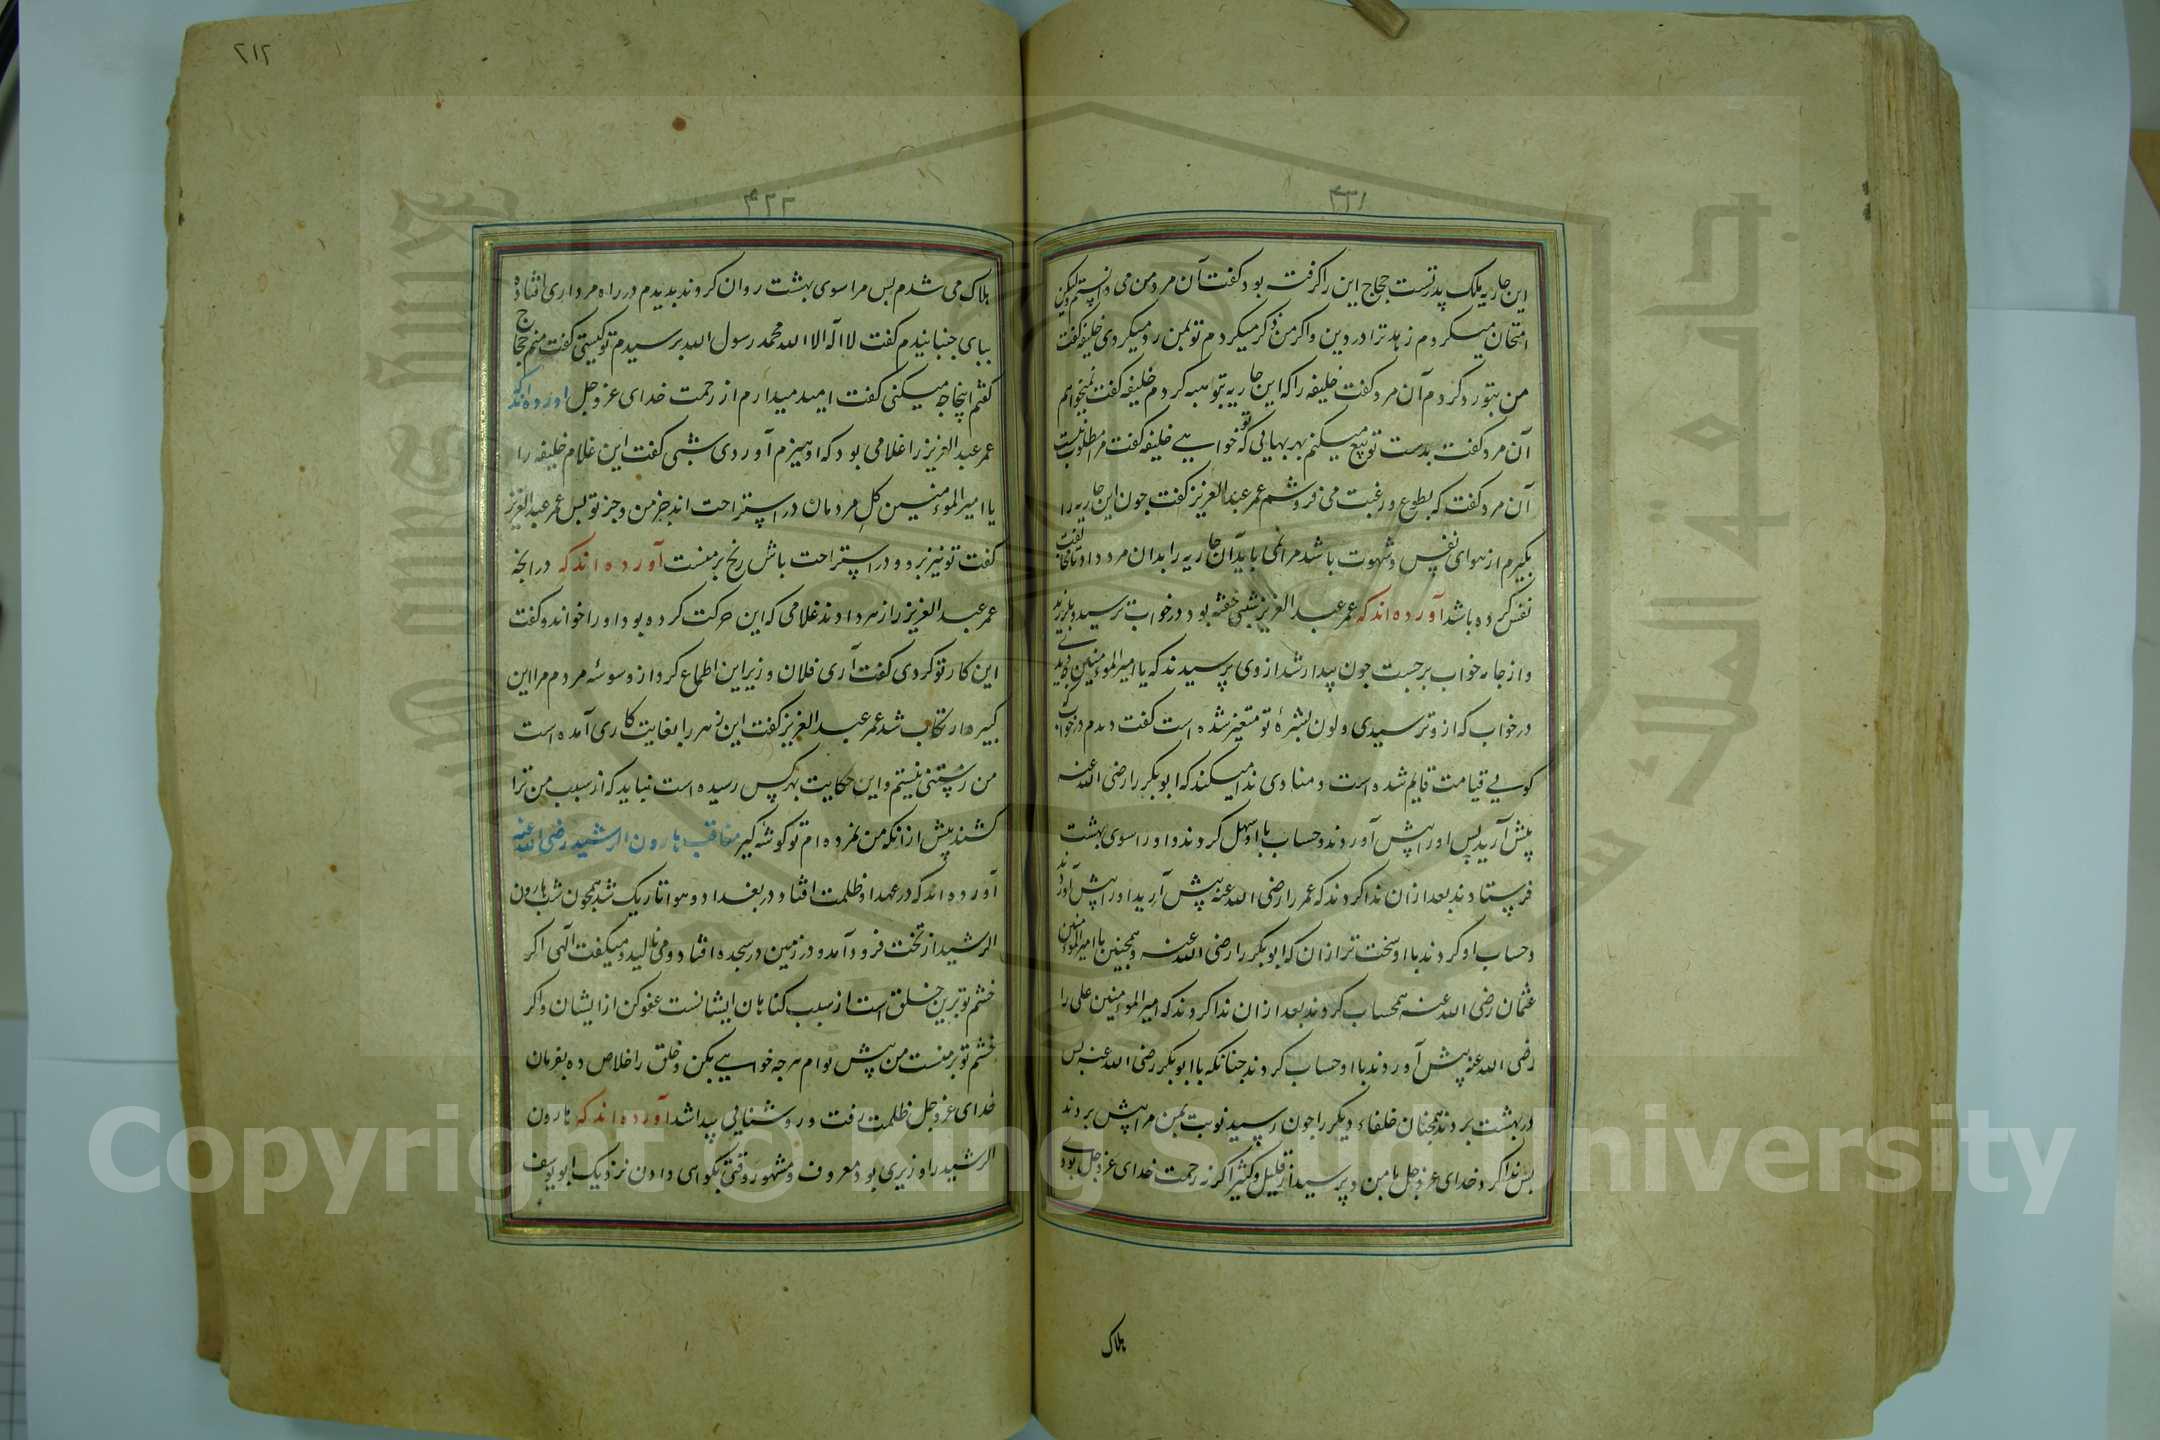 ۴۲۱
این جاریه ملک پدر تست حجاج این را گرفته بود گفت آن مرد من می دانستم ولیکن
امتحان میکردم زهد ترا در دین و اگر من ذکر میکردم تو بمن رد میکردی خلیفه گفت
من بتو رد کردم آن مرد گفت خلیفه را که این جاریه بتو هبه کردم خلیفه گفت نمیخواهم
آن مرد گفت بدست تو بیع میکنم بهر بهایی که تو خواهی خلیفه گفت مرا مطلوب نیست
آن مرد گفت که بطوع و رغبت می فروشم عمر عبد العزیز گفت جون این جاریه را
بگیرم از هوای نفس و شهوت باشد مرا نمی باید آن جاریه را بدان مرد داد تا مخالفت
نفس کرده باشد آورده اند که عمر عبد العزیز شبی خفته بود در خواب ترسید و بلرزید
و از جامه خواب برجست جون بیدار شد از وی پرسیدند که یا امیر المومنین چه دیدی
در خواب که از و ترسیدی و لون بشرهٔ تو متغیر شده است گفت دیدم در خواب
گویی قیامت قایم شده است و منادی ندا میکند که ابوبکر را رضی الله عنه
پیش آرید پس او را پیش آوردند و حساب با او سهل کردند و او را سوی بهشت
فرستادند بعد ازان ندا کردند که عمر را رضی الله عنه پیش آرید او را پیش آوردند
و حساب او کردند با او سخت تر ازان که ابوبکر را رضی الله عنه و همچنین با امیر المومنین
عثمان رضی الله عنه همحساب کردند بعد ازان ندا کردند که امیر المومنین علی را
رضی الله عنه پیش آوردند با او حساب کردند جنانکه با ابوبکر رضی الله عنه بس
در بهشت بردند همچنان خلفاء دیگر را جون رسید نوبت بمن مرا پیش بردند
بس ندا کرد خدای عز وجل با من و پرسید از قلیل و کثیر اگر نه رحمت خدای عز وجل بودی
هلاک
۲۱۲
۴۲۲
هلاک می شدم بس مرا سوی بهشت روان کردند بدیدم در راه مرداری افتاده
بپای جنبانیدم گفت لا اله الا الله محمد رسول الله پرسیدم تو کیستی گفت منم حجاج
گفتم اینجا چه میکنی گفت امید میدارم از رحمت خدای عز وجل آورده اند که
عمر عبد العزیز را غلامی بود که او هیزم آوردی شبی گفت این غلام خلیفه را
یا امیر المومنین کل مردمان در استراحت اند جز من و جز تو بس عمر عبد العزیز
گفت تو نیز برو و در استراحت باش رنج بر منست آورده اند که در انچه
عمر عبد العزیز را زهر دادند غلامی که این حرکت کرده بود او را خواند و گفت
این کار تو کردی گفت آری فلان وزیر این اطماع کرد از وسوسهٔ مردم مرا این
کبیره ارتکاب شد عمر عبد العزیز گفت این زهر را بغایت کاری آمده است
من زیستنی نیستم و این حکایت بهر کس رسیده است نباید که از سبب من ترا
کشند پیش ازانکه من نمرده ام تو گوشه گیر مناقب هارون الرشید رضی الله عنه
آورده اند که در عهد او ظلمت افتاد در بغداد و هوا تاریک شد همچون شب هارون
الرشید از تخت فرود آمد و در زمین در سجده افتاد و می نالید و میگفت الهی اگر
خشم تو برین خلق است از سبب گناهان ایشانست عفو کن از ایشان و اگر
خشم تو بر منست من پیش توام هرچه خواهی بکن و خلق را خلاص ده بفرمان
خدای عز وجل ظلمت رفت و روشنایی پیدا شد آورده اند که هارون
الرشید را وزیری بود معروف و مشهور وقتی بگواهی دادن نزدیک ابو یوسف
Copyright © King Saud University